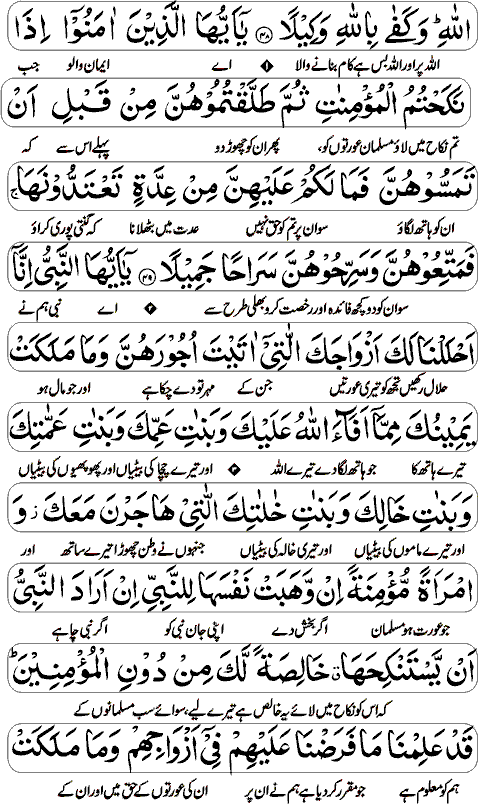 اللّٰهِ ؕ وَكَفٰى بِاللّٰهِ وَكِيْلًا ﴿۴۸﴾ يٰۤاَيُّهَا الَّذِيْنَ اٰمَنُوْۤا اِذَا
اللہ پر اور اللہ بس ہے کام بنانے والا ۱ اے ایمان والو جب
نَكَحْتُمُ الْمُؤْمِنٰتِ ثُمَّ طَلَّقْتُمُوْهُنَّ مِنْ قَبْلِ اَنْ
تم نکاح میں لاؤ مسلمان عورتوں کو، پھر ان کو چھوڑ دو پہلے اس سے کہ
تَمَسُّوْهُنَّ فَمَا لَكُمْ عَلَيْهِنَّ مِنْ عِدَّةٍ تَعْتَدُّوْنَهَا ۚ
ان کو ہاتھ لگاؤ سو ان پر تم کو حق نہیں عدت میں بٹھلانا کہ گنتی پوری کراؤ
فَمَتِّعُوْهُنَّ وَسَرِّحُوْهُنَّ سَرَاحًا جَمِيْلًا ﴿۴۹﴾ يٰۤاَيُّهَا النَّبِيُّ اِنَّاۤ
سو ان کو دو کچھ فائدہ اور رخصت کرو بھلی طرح سے ۲ اے نبی ہم نے
اَحْلَلْنَا لَكَ اَزْوَاجَكَ الّٰتِيْۤ اٰتَيْتَ اُجُوْرَهُنَّ وَمَا مَلَكَتْ
حلال رکھیں تجھ کو تیری عورتیں جن کے مہر تو دے چکا ہے اور جو مال ہو
يَمِيْنُكَ مِمَّاۤ اَفَآءَ اللّٰهُ عَلَيْكَ وَبَنٰتِ عَمِّكَ وَبَنٰتِ عَمّٰتِكَ
تیرے ہاتھ کا جو ہاتھ لگا دے تیرے اللہ ۲ اور تیرے چچا کی بیٹیاں اور پھوپھیوں کی بیٹیاں
وَبَنٰتِ خَالِكَ وَبَنٰتِ خٰلٰتِكَ الّٰتِيْ هَاجَرْنَ مَعَكَ ؗ وَ
اور تیرے ماموں کی بیٹیاں اور تیری خالہ کی بیٹیاں جنہوں نے وطن چھوڑا تیرے ساتھ اور
امْرَاَةً مُّؤْمِنَةً اِنْ وَّهَبَتْ نَفْسَهَا لِلنَّبِيِّ اِنْ اَرَادَ النَّبِيُّ
جو عورت ہو مسلمان اگر بخش دے اپنی جان نبی کو اگر نبی چاہے
اَنْ يَّسْتَنْكِحَهَا ۗ خَالِصَةً لَّكَ مِنْ دُوْنِ الْمُؤْمِنِيْنَ ؕ
کہ اس کو نکاح میں لائے یہ خالص ہے تیرے لیے، سوائے سب مسلمانوں کے
قَدْ عَلِمْنَا مَا فَرَضْنَا عَلَيْهِمْ فِيْۤ اَزْوَاجِهِمْ وَمَا مَلَكَتْ
ہم کو معلوم ہے جو مقرر کر دیا ہے ہم نے ان پر ان کی عورتوں کے حق میں اور ان کے